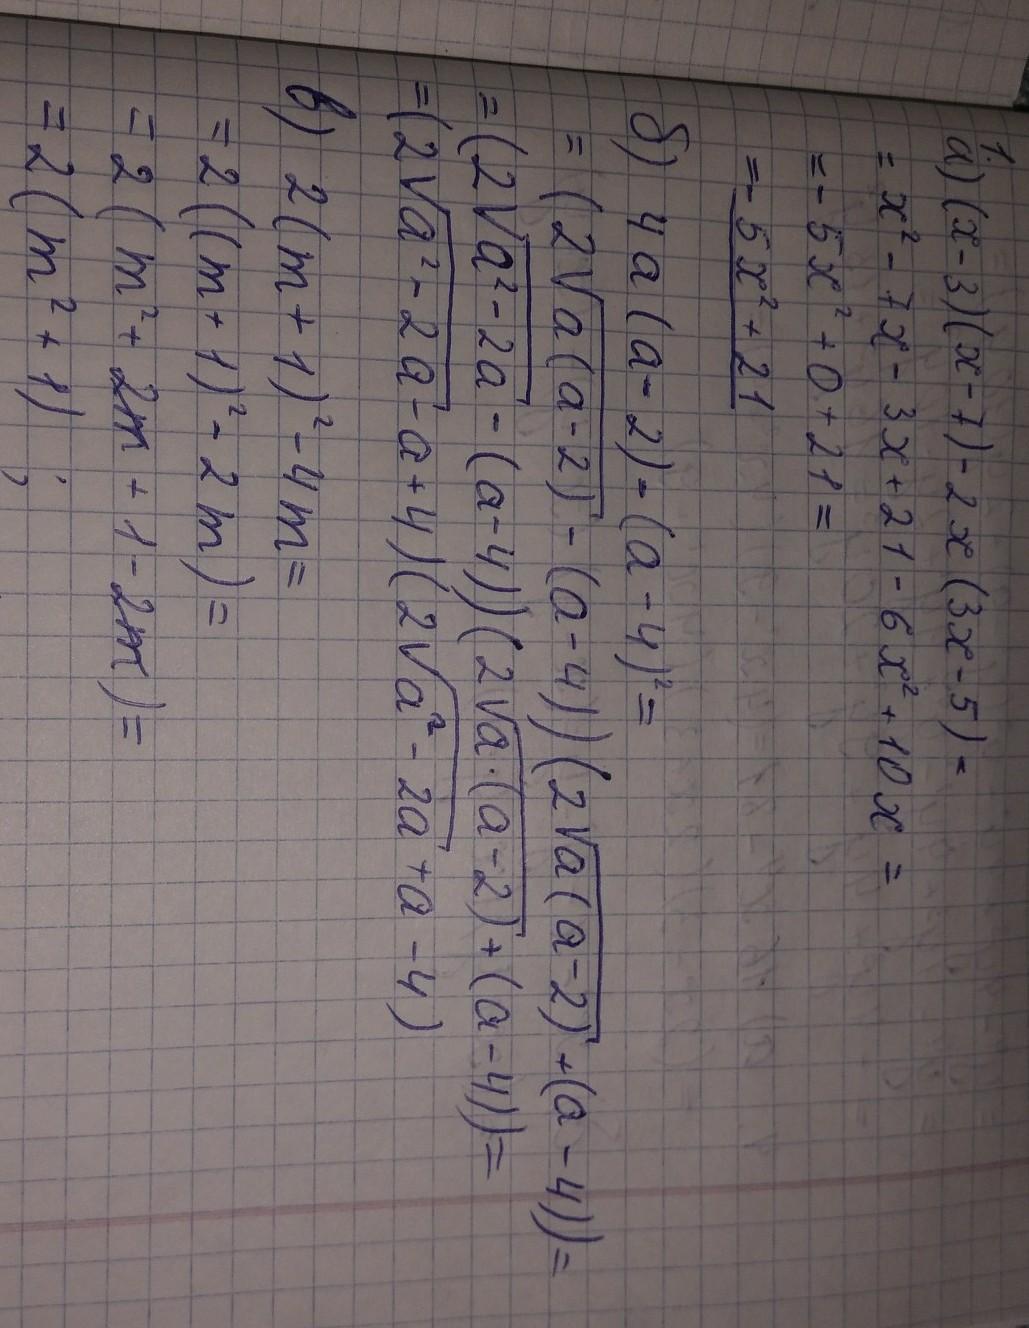 1.
а) (x-3)(x-7)-2x(3x-5)=
= x²-7x-3x+21-6x²+10x=
=-5x²+0+21=
=-5x²+21
б) 4a(a-2)-(a-4)²=
=(2√a(a-2)-(a-4))(2√a(a-2)+(a-4))=
=(2√a²-2a-(a-4))(2√a·(a-2)+(a-4))=
=(2√a²-2a-a+4)(2√a²-2a+a-4)
в) 2(m+1)²-4m=
=2((m+1)²-2m)=
=2(m²+2m+1-2m)=
=2(m²+1);